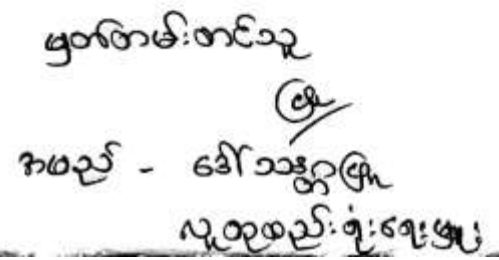 မှတ်တမ်းတင်သူ
အမည် - ဒေါ်သန္တာဖြူ
လူထုစည်းရုံးရေးမှူး